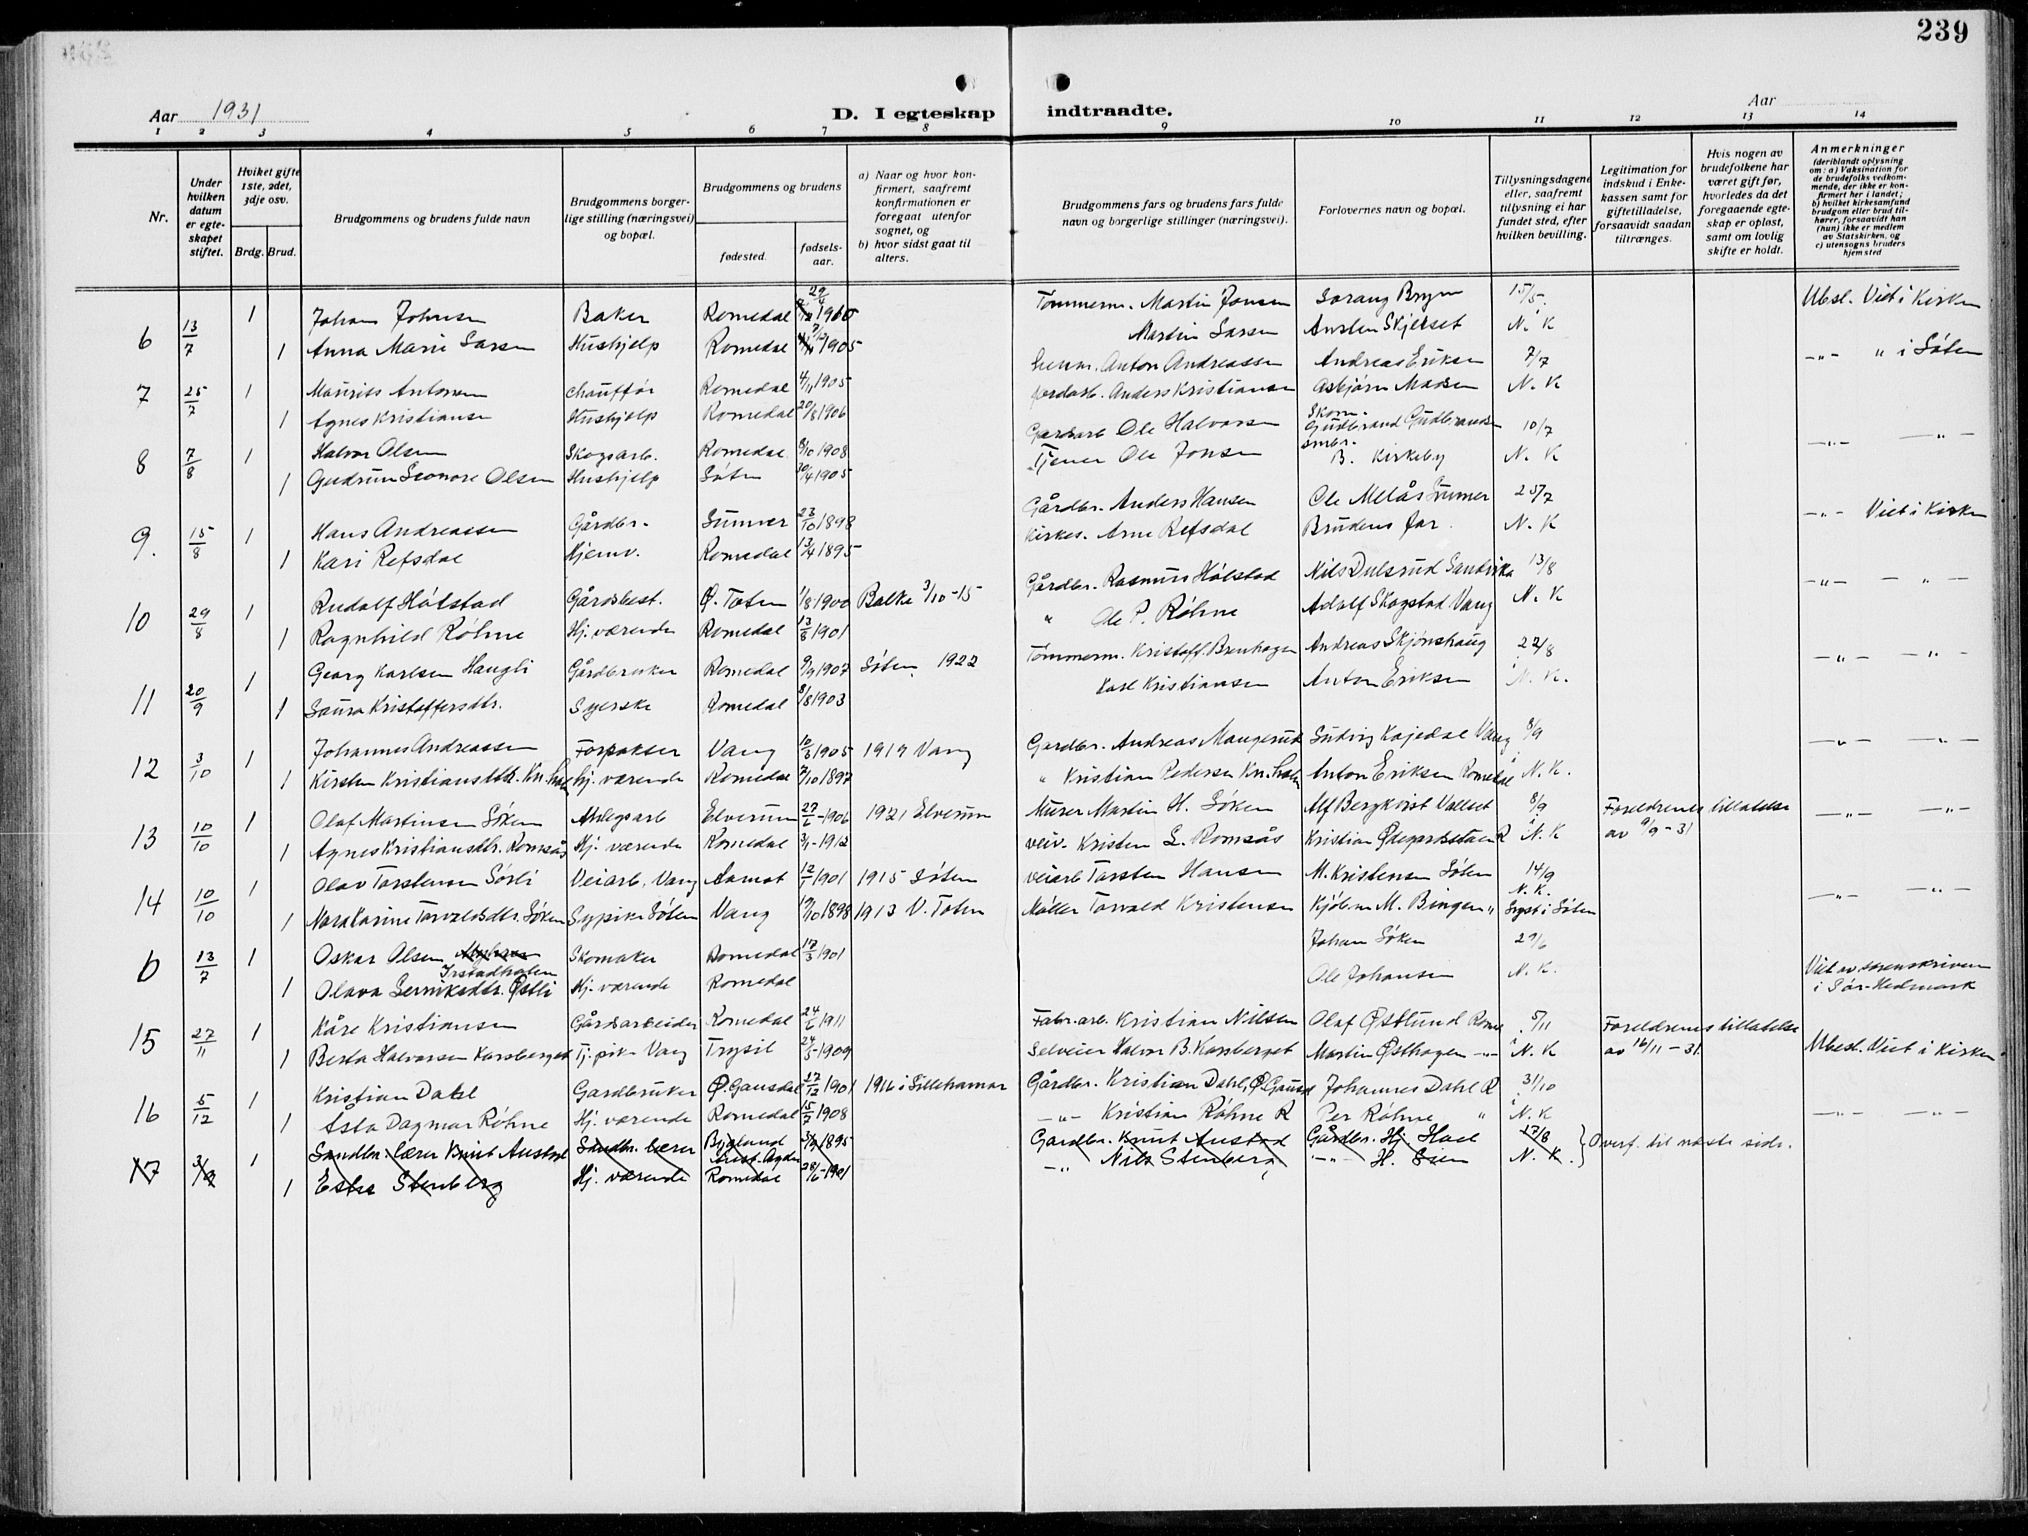 239
Aar 1931
D. I egteskap indtraadte.
Aar
1 2 3 4 5 6 7 8 9 10 11 12 13 14
Nr.
Under hvilken datum er egteskapet stiftet.
Hviket gifte 1ste, 2det, 3dje osv.
Brdg. Brud.
Brudgommens og brudens fulde navn
Brudgommens borgerlige stilling (næringsvei) og bopæl.
Brudgommens og brudens
fødested.
fødselsaar.
a) Naar og hvor konfirmert, saafremt konfirmationen er foregaat utenfor sognet, og
b) hvor sidst gaat til alters.
Brudgommens fars og brudens fars fulde navn og borgerlige stillinger (næringsvei).
Forlovernes navn og bopæl.
Tillysningsdagene eller, saafremt tillysning ei har fundet sted, efter hvilken bevilling.
Legitimation for indskud i Enkekassen samt for giftetilladelse, forsaavidt saadan tiltrænges.
Hvis nogen av brudefolkene har været gift før, hvorledes da det foregaaende egteskap er opløst, samt om lovlig skifte er holdt.
Anmerkninger (deriblandt oplysning om: a) Vaksination for de brudefolks vedkommende, der ikke er konfirmert her i landet; b) hvilket kirkesamfund brudgom eller brud tilhører, forsaavidt han (hun) ikke er medlem av Statskirken, og c) utensogns bruders hjemsted
6 13/7 1 Johan Johnsen Baker Romedal 29/4 1905 Tømmerm. Martin Jonsen 15/5. Ubesl. Viet i Kirken
1 Anna Marie Larsen Hushjelp Romedal 1905 Martin Larsen Austen Skjelset N. K
7 25/7 1 Maurits Antonsen Chauffør Romedal 4/11 1905 Anton Andreassen Andreas Eriksen 7/7 -"- " i Løten
1 Agnes Kristiansen Hushjelp Romedal 20/8 1906 Jordarb. Anders Kristiansen Asbjørn Madsen N. K
8 7/8 1 Halvor Olsen Skogsarb. Romedal 8/10 1908 Gardsarb Ole Halvorsen Skom. Gudbrand Gudbrands. 10/7 -"- -"-
1 Gudrun Leonore Olsen Hushjelp Løten 30/4 1905 Tjener Ole Jonsen B. Kirkeby N. K
9. 15/8 1 Hans Andreassen Gårdbr. Lunner 23/10 1898 Gårdbr. Anders Hansen Ole Melås Lunner 25/7 -"- Viet i Kirken
1 Kari Refsdal Hjemv. Romedal 13/4 1895 Kirkes. Arne Refsdal Brudens far. N. K
10 29/8 1 Rudolf Hølstad Gårdsbest. Ø. Toten 1/8 1900 Balke 3/10-15 Gårdbr. Rasmus Hølstad Nils Dulsrud Sandvika 13/8 -"- -"-
1 Ragnhild Røhne Hj. værende Romedal 13/8 1901 " Ole P. Røhne Adolf Skogstad Vang N. K
11 20/9 1 Georg Karlsen Haugli Gårdbruker Romedal 9/9 1907 Løten 1922 Tømmerm. Kristoff. Brenhagen Andreas Skjønshaug 22/8 -"- -"-
1 Laura Kristoffersdtr. Syerske Romedal 8/8 1903 Karl Kristiansen Anton Eriksen N. K.
12 3/10 1 Johannes Andreassen Forpakter Vang 10/3 1905 1919 Vang Gardbr. Andreas Maugerud Ludvig Kajedal Vang 8/9 -"- -"-
1 Kirsten Kristiansdtr. Kn.holen Hj. værende Romedal 7/10 1897 " Kristian Pedersen Kn.holen Anton Eriksen Romedal N. K.
13 10/10 1 Olaf Martinsen Løken Anlegsarb Elverum 27/6-1906 1921 Elverum Murer Martin H. Løken Alf Bergkvist Vallset 8/9 Foreldrenes tillatelse -"- -"-
1 Agnes Kristiansdtr. Romsås Hj. værende Romedal 3/1-1912 veiv. Kristen L. Romsås Kristian Ødegardstuen R N. K av 9/9-31
14 10/10 1 Olav Torstensen Sørli Veiarb. Vang Aamot 12/1 1901 1915 Løten veiarb Torsten Hansen M. Kristensen Løten 14/9 N. K. -"- -"-
1 Nora Karine Torvaldsdtr. Løken Sypike Løten Vang 19/10 1898 1913 V. Toten Møller Torvald Kristensen Kjøbm M. Bingen " Lyst i Løten
b 13/7 1 Oskar Olsen Irstadholen Skomaker Romedal 17/3 1901 Johan Løken 29/6
1 Olava Østli Hj. værende Romedal Ole Johansen N. K. Viet av sorenskriveren i Sør-Hedmark
15 27/11 1 Kåre Kristiansen Gårdsarbeider Romedal 24/6 1911 Fabr.arb. Kristian Nilsen Olaf Østlund Rome 5/11 Foreldrenes tillatelse Ubesl. Viet i Kirken
1 Berta Halvorsen Karsberget Tj. pike Vang Trysil 24/5-1909 Selveier Halvor B. Karsberget Martin Østhagen -"- N. K av 16/11-31
16 5/12 1 Kristian Dahl Gardbruker Ø. Gausdal 17/12 1901 1916 i Lillehamar Gårdbr. Kristian Dahl, Ø. Gausd Johannes Dahl R 31/10 -"- -"-
1 Åsta Dagmar Røhne Hj. værende Romedal 15/7 1908 -"- Kristian Røhne R Per Røhne " N. K
17 3/9 1 Landbr. lærer Knut Austad Landbr. lærer Bygland Aust. Agder 1895 Gardbr. Knut Austad Gårdbr. Hj. Hoel 17/8 } Overf. til næste side.
1 Ester Stenberg Hj. værende Romedal 28/6-1901 -"- Nils Stenberg -"- H. Lien N. K.